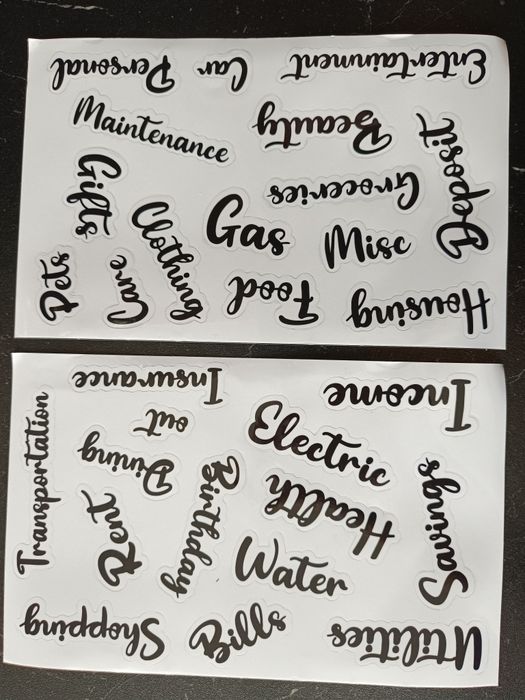 Personal
Car
Entertainment
Maintenance
Beauty
Deposit
Gifts
Groceries
Clothing
Gas
Misc
Pets
Care
Food
Housing
Insurance
Income
Transportation
Dining
out
Electric
Birthday
Health
Savings
Rent
Water
Shopping
Bills
Utilities